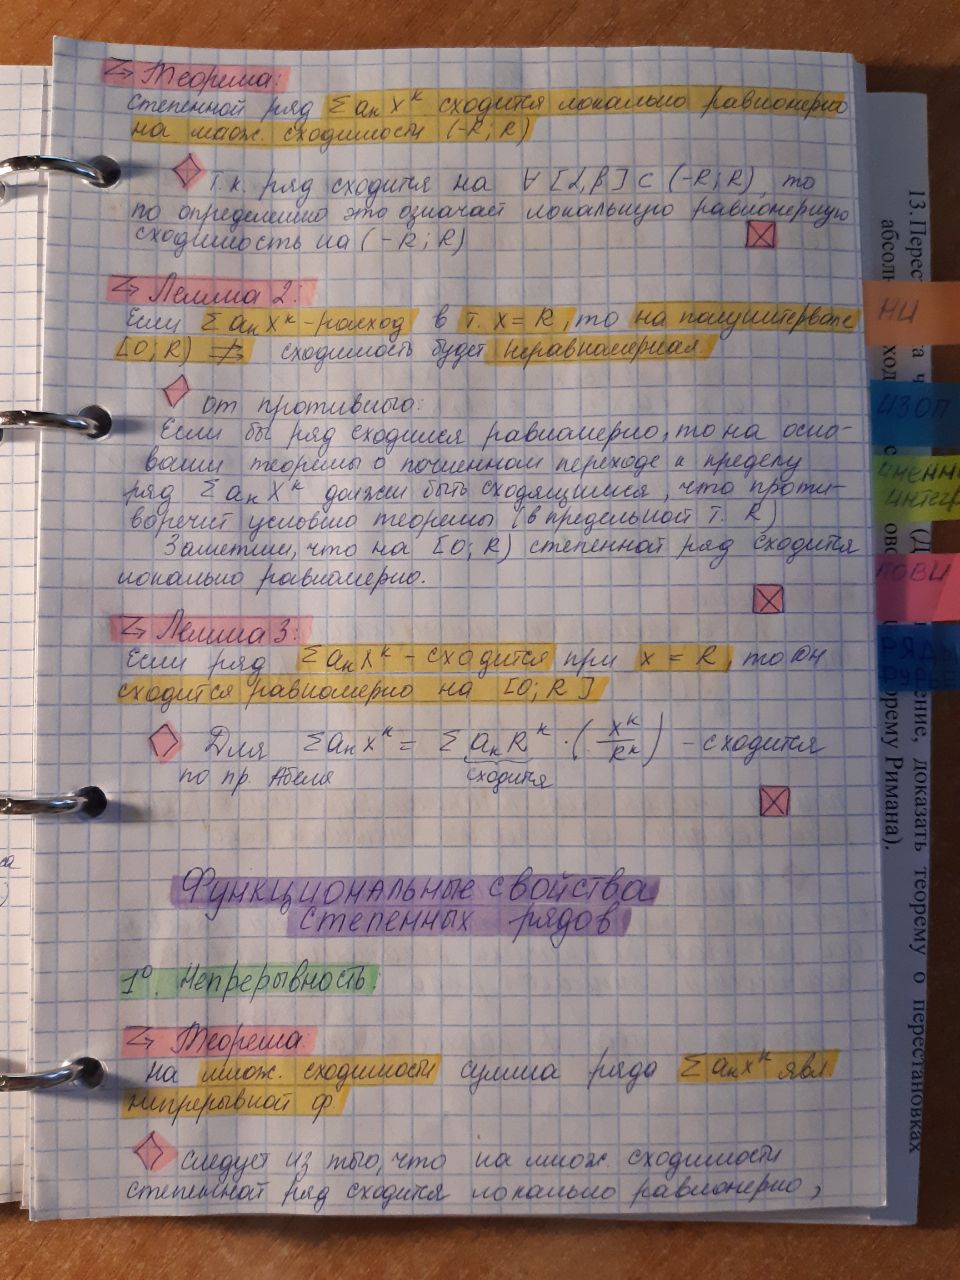 Теорема:
Степенной ряд Σaₖxᵏ сходится локально равномерно
на множ. сходимости (-R; R)
Т.к. ряд сходится на ∀ [α, β] ⊂ (-R; R), то
по определению это означает локальную равномерную
сходимость на (-R; R)
Лемма 2:
Если Σaₖxᵏ - расход в т. x = R, то на полуинтервале
[0; R) ⇉̸ сходимость будет неравномерная.
от противного:
Если бы ряд сходился равномерно, то на осно-
вании теоремы о почленном переходе к пределу
ряд Σaₖxᵏ должен быть сходящимся, что проти-
воречит условию теоремы (в предельной т. R)
Заметим, что на [0; R) степенной ряд сходится
локально равномерно.
Лемма 3:
Если ряд Σaₖxᵏ - сходится при x = R, то он
сходится равномерно на [0; R]
Для Σaₖxᵏ = Σ aₖRᵏ · (xᵏ/Rᵏ) - сходится
по пр. Абеля сходится
Функциональные свойства
степенных рядов
1⁰. Непрерывность.
Теорема
На множ. сходимости сумма ряда Σaₖxᵏ явл
непрерывной ф.
Следует из того, что на множ. сходимости
степенной ряд сходится локально равномерно,
НИ
ИЗОП
ПОВИ
РЯДЫ
13. Перест
теорему о перестановках
ение, доказать
орему Римана).